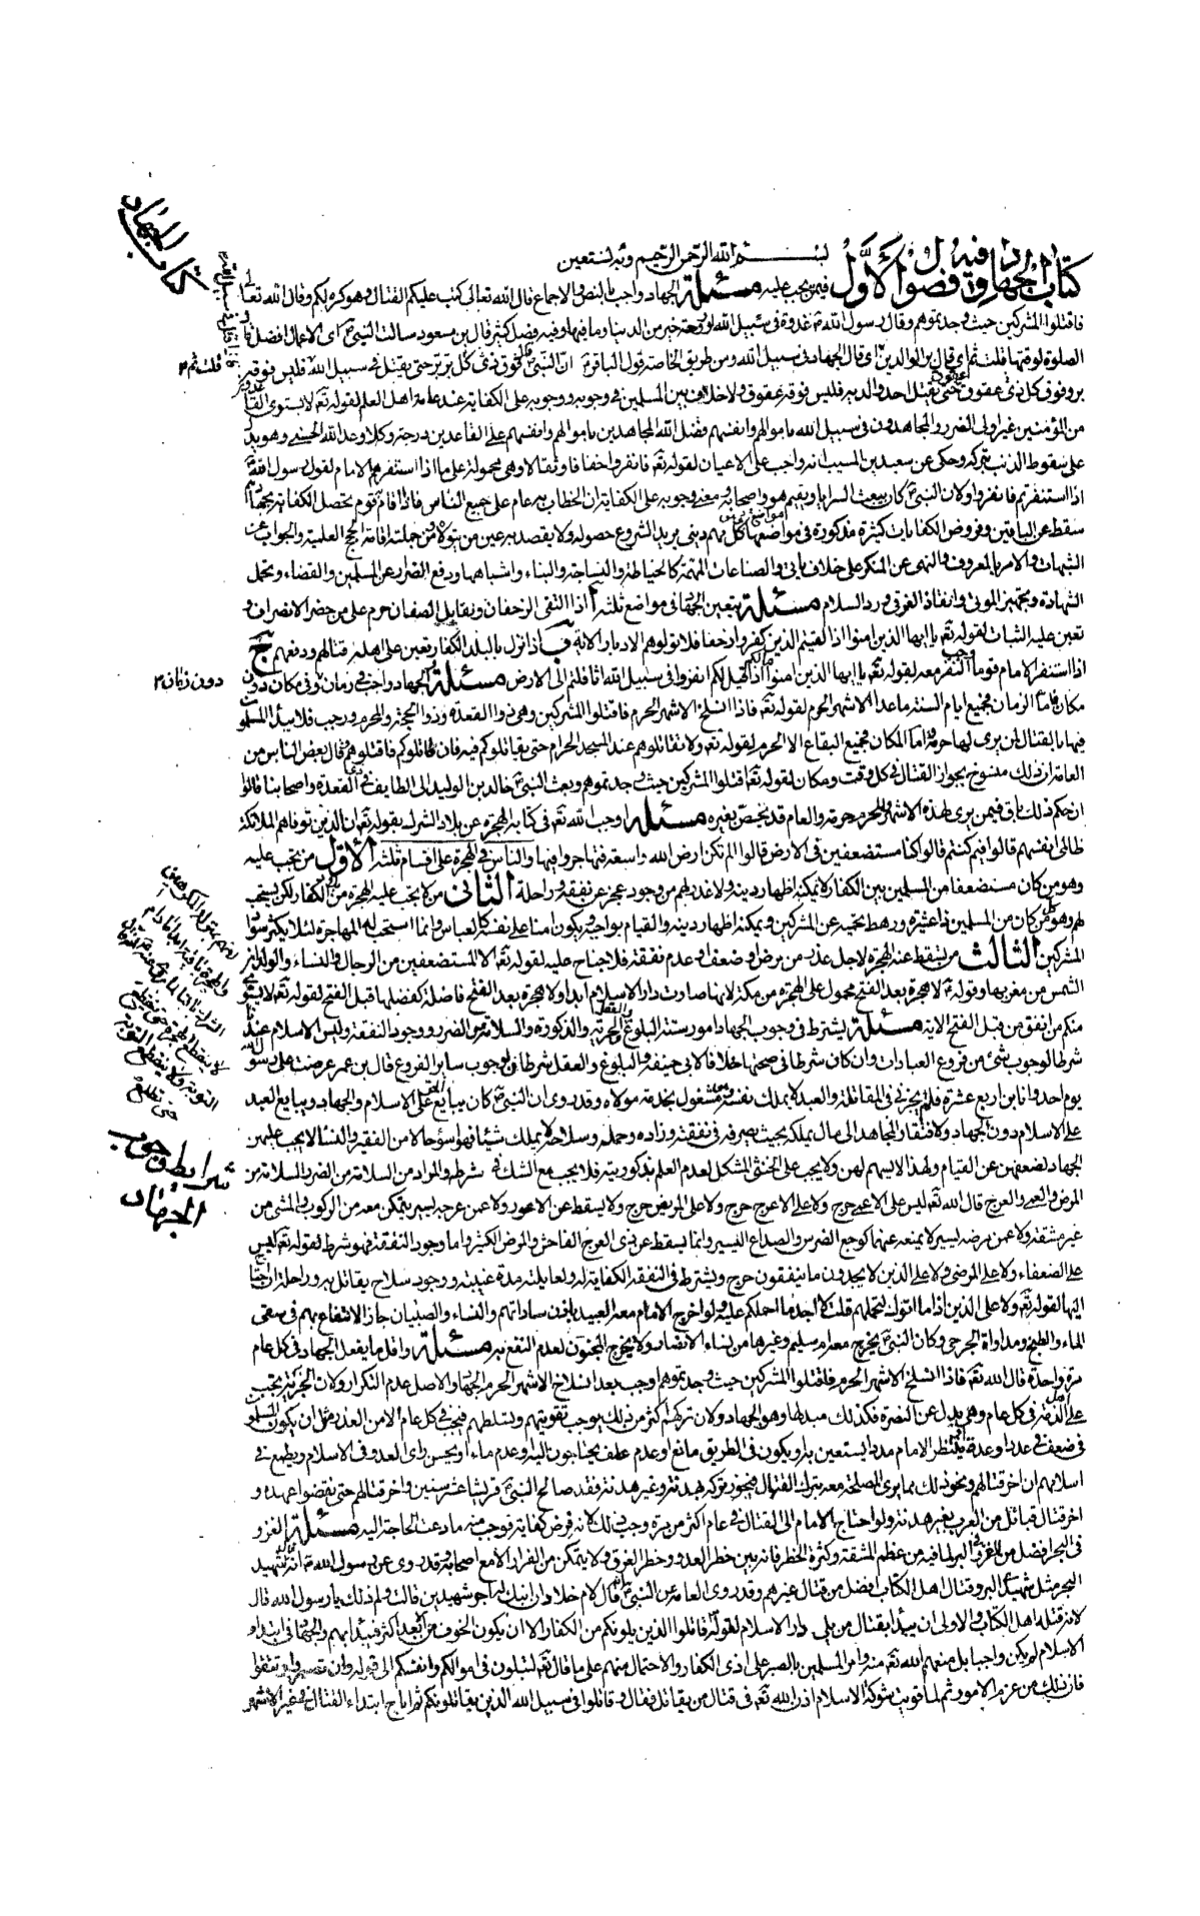 كتاب الجهاد وفيه فصول الأول بسم الله الرحمن الرحيم وبه نستعين
فيمن يجب عليه مسئلة الجهاد واجب بالنص والاجماع قال الله تعالى كتب عليكم القتال وهو كره لكم وقال الله تعا
فاقتلوا المشركين حيث وجدتموهم وقال رسول الله ص غدوة في سبيل الله او روحة خير من الدنيا وما فيها وفيه فضل كثير قال بن مسعود سالت النبي ص اى الاعمال افضل قا
الصلوة لوقتها قلت ثم اي قال بر الوالدين اي قال الجهاد في سبيل الله ومن طريق الخاصة قول الباقر ع ان النبي ص قال فوق ذي كل بر بر حتى يقتل في سبيل الله فليس فوقه
بر وفوق كل ذي عقوق حتى يقتل احد والديه فليس فوقه عقوق ولا خلاف بين المسلمين في وجوبه ووجوبه على الكفاية عند عامة اهل العلم لقوله تع لا يستوى القا
من المؤمنين غير اولى الضرر والمجاهدون في سبيل الله باموالهم وانفسهم فضل الله المجاهدين باموالهم وانفسهم على القاعدين درجة وكلا وعد الله الحسنى وهو يدل
على سقوط الذنب بتركه وحكى عن سعيد بن المسيب انه واجب على الاعيان لقوله تع فانفروا خفافا وثقالا وهي محمولة على ما اذا استنفرهم الامام لقول رسول الله
اذا استنفرتم فانفروا ولان النبي ص كان يبعث السرايا ويقيم هو واصحابه ومعنى وجوبه على الكفاية ان الخطاب به عام على جميع الناس فاذا قام قوم تحصل الكفاية بجهادهم
سقط عن الباقين وفروض الكفايات كثيرة مذكورة في مواضعها كل مهم ديني يريد الشروع حصوله ولا يقصد به عين من يتولاه ومن جملته اقامة الحجج العلمية والجواب عن
الشبهات والامر بالمعروف والنهى عن المنكر على خلاف ياتى والصناعات المهمة كالخياطة والنساجة والبناء واشباهها ودفع الضرر عن المسلمين والقضاء وتحمل
الشهادة وتجهيز الموتى وانقاذ الغرقى ورد السلام مسئلة يتعين الجهاد في مواضع ثلثة ا اذا التقى الزحفان وتقابل الصفان حرم على من حضر الانصراف و
تعين عليه الثبات لقوله تع يا ايها الذين امنوا اذا لقيتم الذين كفروا زحفا فلا تولوهم الادبار الاية ب اذا نزل بالبلد الكفار تعين على اهله قتالهم ودفعهم ج
اذا استنفر الامام قوما وجب النفر معه لقوله تع يا ايها الذين امنوا ما لكم اذا قيل لكم انفروا في سبيل الله اثاقلتم الى الارض مسئلة الجهاد واجب في زمان وفي مكان دون
مكان فاما الزمان فجميع ايام السنة ما عدا الاشهر الحرم لقوله تع فاذا انسلخ الاشهر الحرم فاقتلوا المشركين وهي ذوا القعدة وذوا الحجة والمحرم ورجب فلا يبدأ المسلمون
فيها بالقتال لمن يرى لها حرمة واما المكان فجميع البقاع الا الحرم لقوله تع ولا تقاتلوهم عند المسجد الحرام حتى يقاتلوكم فيه فان قاتلوكم فاقتلوهم وقال بعض الناس من
العامة ان ذلك منسوخ بجواز القتال في كل وقت ومكان لقوله تع اقتلوا المشركين حيث وجدتموهم وبعث النبي ص خالد بن الوليد الى الطايف في ذي القعدة واصحابنا قالوا
ان حكم ذلك باق فيمن يرى لهذه الاشهر وللحرم حرمة والعام قد يخص بغيره مسئلة اوجب الله تع في كتابه الهجرة عن بلاد الشرك بقوله تع ان الذين توفاهم الملائكة
ظالمى انفسهم قالوا فيم كنتم قالوا كنا مستضعفين في الارض قالوا الم تكن ارض الله واسعة فتهاجروا فيها والناس في الهجرة على اقسام ثلثة الأول من تجب عليه
وهو من كان مستضعفا من المسلمين بين الكفار لا يمكنه اظهار دينه ولا عذر لهم من وجود عجز عن نفقة وراحلة الثاني من لا يجب عليه الهجرة من الكفار لكن يستحب
لهم وهو من كان من المسلمين ذا عشيرة ورهط تحميه عن المشركين ويمكنه اظهار دينه والقيام بواجبه ويكون امنا على نفسه كالعباس وانما استحب له المهاجرة لئلا يكثر سواد
المشركين الثالث من تسقط عنه الهجرة لاجل عذر من مرض او ضعف او عدم نفقة فلا جناح عليه لقوله تع الا المستضعفين من الرجال والنساء والولدان
الشمس من مغربها وقوله ص لا هجرة بعد الفتح محمول على الهجرة من مكة لانها صارت دار الاسلام ابدا ولا هجرة بعد الفتح فاضلة كفضلها قبل الفتح لقوله تع لا يستوي
منكم من انفق من قبل الفتح الاية مسئلة يشترط في وجوب الجهاد امور ستة البلوغ والعقل والحرية والذكورة والسلامة من الضرر ووجود النفقة وليس الاسلام عندنا
شرطا لوجوب شئ من فروع العبادات وان كان شرطا في صحتها خلافا لابي حنيفة والبلوغ والعقل شرطان لوجوب ساير الفروع قال بن عمر عرضت على رسول الله
يوم احد وانا بن اربع عشرة فلم يجزني في المقاتلة والعبد لا يملك نفسه ومشغول بخدمة مولاه وقد روى ان النبي ص كان يبايع الحر على الاسلام والجهاد ويبايع العبد
على الاسلام دون الجهاد ولافتقار المجاهد الى مال يملكه بحيث يصرفه في نفقته وزاده وحمله وسلاحه ولا يملك شيئا فهو اسوء حالا من الفقير والنساء لا يجب عليهن
الجهاد لضعفهن عن القيام ولهذا لا يسهم لهن ولا يجب على الخنثى المشكل لعدم العلم بذكوريته فلا يجب مع الشك في شرطه والمراد من السلامة من الضرر السلامة من
المرض والعمى والعرج قال الله تع ليس على الاعمى حرج ولا على الاعرج حرج ولا على المريض حرج ولا يسقط عن الاعور ولا عمن عرجه يسير يتمكن معه من الركوب والمشى من
غير مشقة ولا عمن مرضه يسير لا يمنعه عنهما كوجع الضرس والصداع اليسير وانما يسقط عن ذى العرج الفاحش والمرض الكثير واما وجود النفقة فهو شرط لقوله تع ليس
على الضعفاء ولا على المرضى ولا على الذين لا يجدون ما ينفقون حرج ويشترط في النفقة الكفاية له ولعايلته مدة غيبته ووجود سلاح يقاتل به وراحلة ان احتاج
اليها لقوله تع ولا على الذين اذا ما اتوك لتحملهم قلت لا اجد ما احملكم عليه ولو اخرج الامام معه العبيد باذن ساداتهم والنساء والصبيان جاز الانتفاع بهم في سقى
الماء والطبخ ومداواة الجرحى وكان النبي ص يخرج معه ام سليم وغيرها من نساء الانصار ولا يخرج المجنون لعدم النفع به مسئلة واقل ما يفعل الجهاد في كل عام
مرة واحدة قال الله تع فاذا انسلخ الاشهر الحرم فاقتلوا المشركين حيث وجدتموهم اوجب بعد انسلاخ الاشهر الحرم الجهاد والاصل عدم التكرار ولان الجزية تجب
على اهل الذمة في كل عام وهي بدل عن النصرة فكذلك مبدلها وهو الجهاد ولان تركهم اكثر من ذلك يوجب تقويتهم وتسلطهم فيجب في كل عام الا من العذر مثل ان يكون المسلمون
في ضعف في عدد او عدة او ينتظر الامام مددا يستعين به او يكون في الطريق مانع او عدم علف يحتاجون اليه او عدم ماء او يحسن راى العدو في الاسلام ويطمع في
اسلامهم ان اخر قتالهم ونحو ذلك مما يرى المصلحة معه بترك القتال فيجوز تركه بهدنة وغير هدنة فقد صالح النبي ص قريشا عشر سنين واخر قتالهم حتى نقضوا عهده و
اخر قتال قبائل من العرب بغير هدنة ولو احتاج الامام الى القتال في عام اكثر من مرة وجب ذلك لانه فرض كفاية فوجب منه ما دعت الحاجة اليه مسئلة الغزو
في البحر افضل من الغزو في البر لما فيه من عظم المشقة وكثرة الخطر فانه بين خطر العدو وخطر الغرق ولا يتمكن من الفرار الا مع اصحابه وقد روى عن رسول الله ص انه قال شهيد
البحر مثل شهيدى البر وقتال اهل الكتاب افضل من قتال غيرهم وقد روى العامة عن النبي ص انه قال لام خلاد ان ابنك له اجر شهيدين قالت ولم ذاك يا رسول الله قال
لانه قتله اهل الكتاب والاولى ان يبدأ بقتال من يلى دار الاسلام لقوله تع قاتلوا الذين يلونكم من الكفار الا ان يكون الخوف من الابعد اكثر فيبدأ بهم والجهاد في ابتداء
الاسلام لم يكن واجبا بل منعهم الله تع منه وامر المسلمين بالصبر على اذى الكفار والاحتمال منهم على ما قال تع لتبلون في اموالكم وانفسكم الى قوله وان تصبروا وتتقوا
فان ذلك من عزم الامور ثم لما قويت شوكة الاسلام اذن الله تع في قتال من يقاتل فقال وقاتلوا في سبيل الله الذين يقاتلونكم ثم اباح ابتداء القتال في غير الاشهر
كتاب الجهاد
قلت ثم ٢
دون زمان ٢
شرايط وجوب
الجهاد